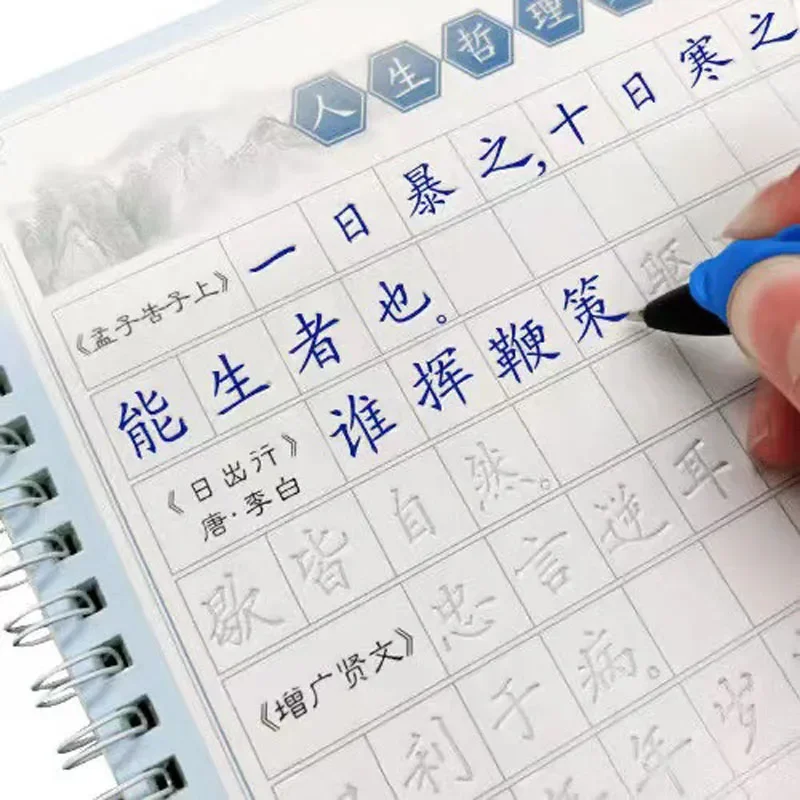 人生哲理
《孟子告子上》
一日暴之,十日寒之
能生者也。
《日出行》
唐·李白
谁挥鞭策驱
歇皆自然。
《增广贤文》
忠言逆耳
利于病。
年岁